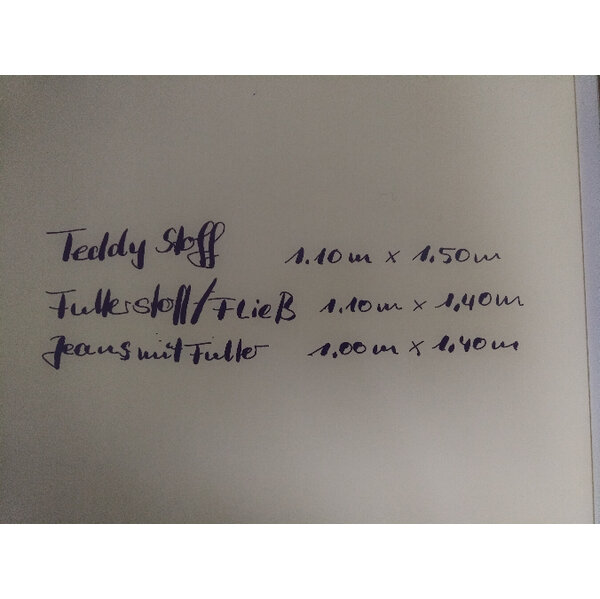 Teddy Stoff 1.10m x 1.50m
Futterstoff/Fließ 1.10m x 1.40m
Jeans mit Futter 1.00m x 1.40m